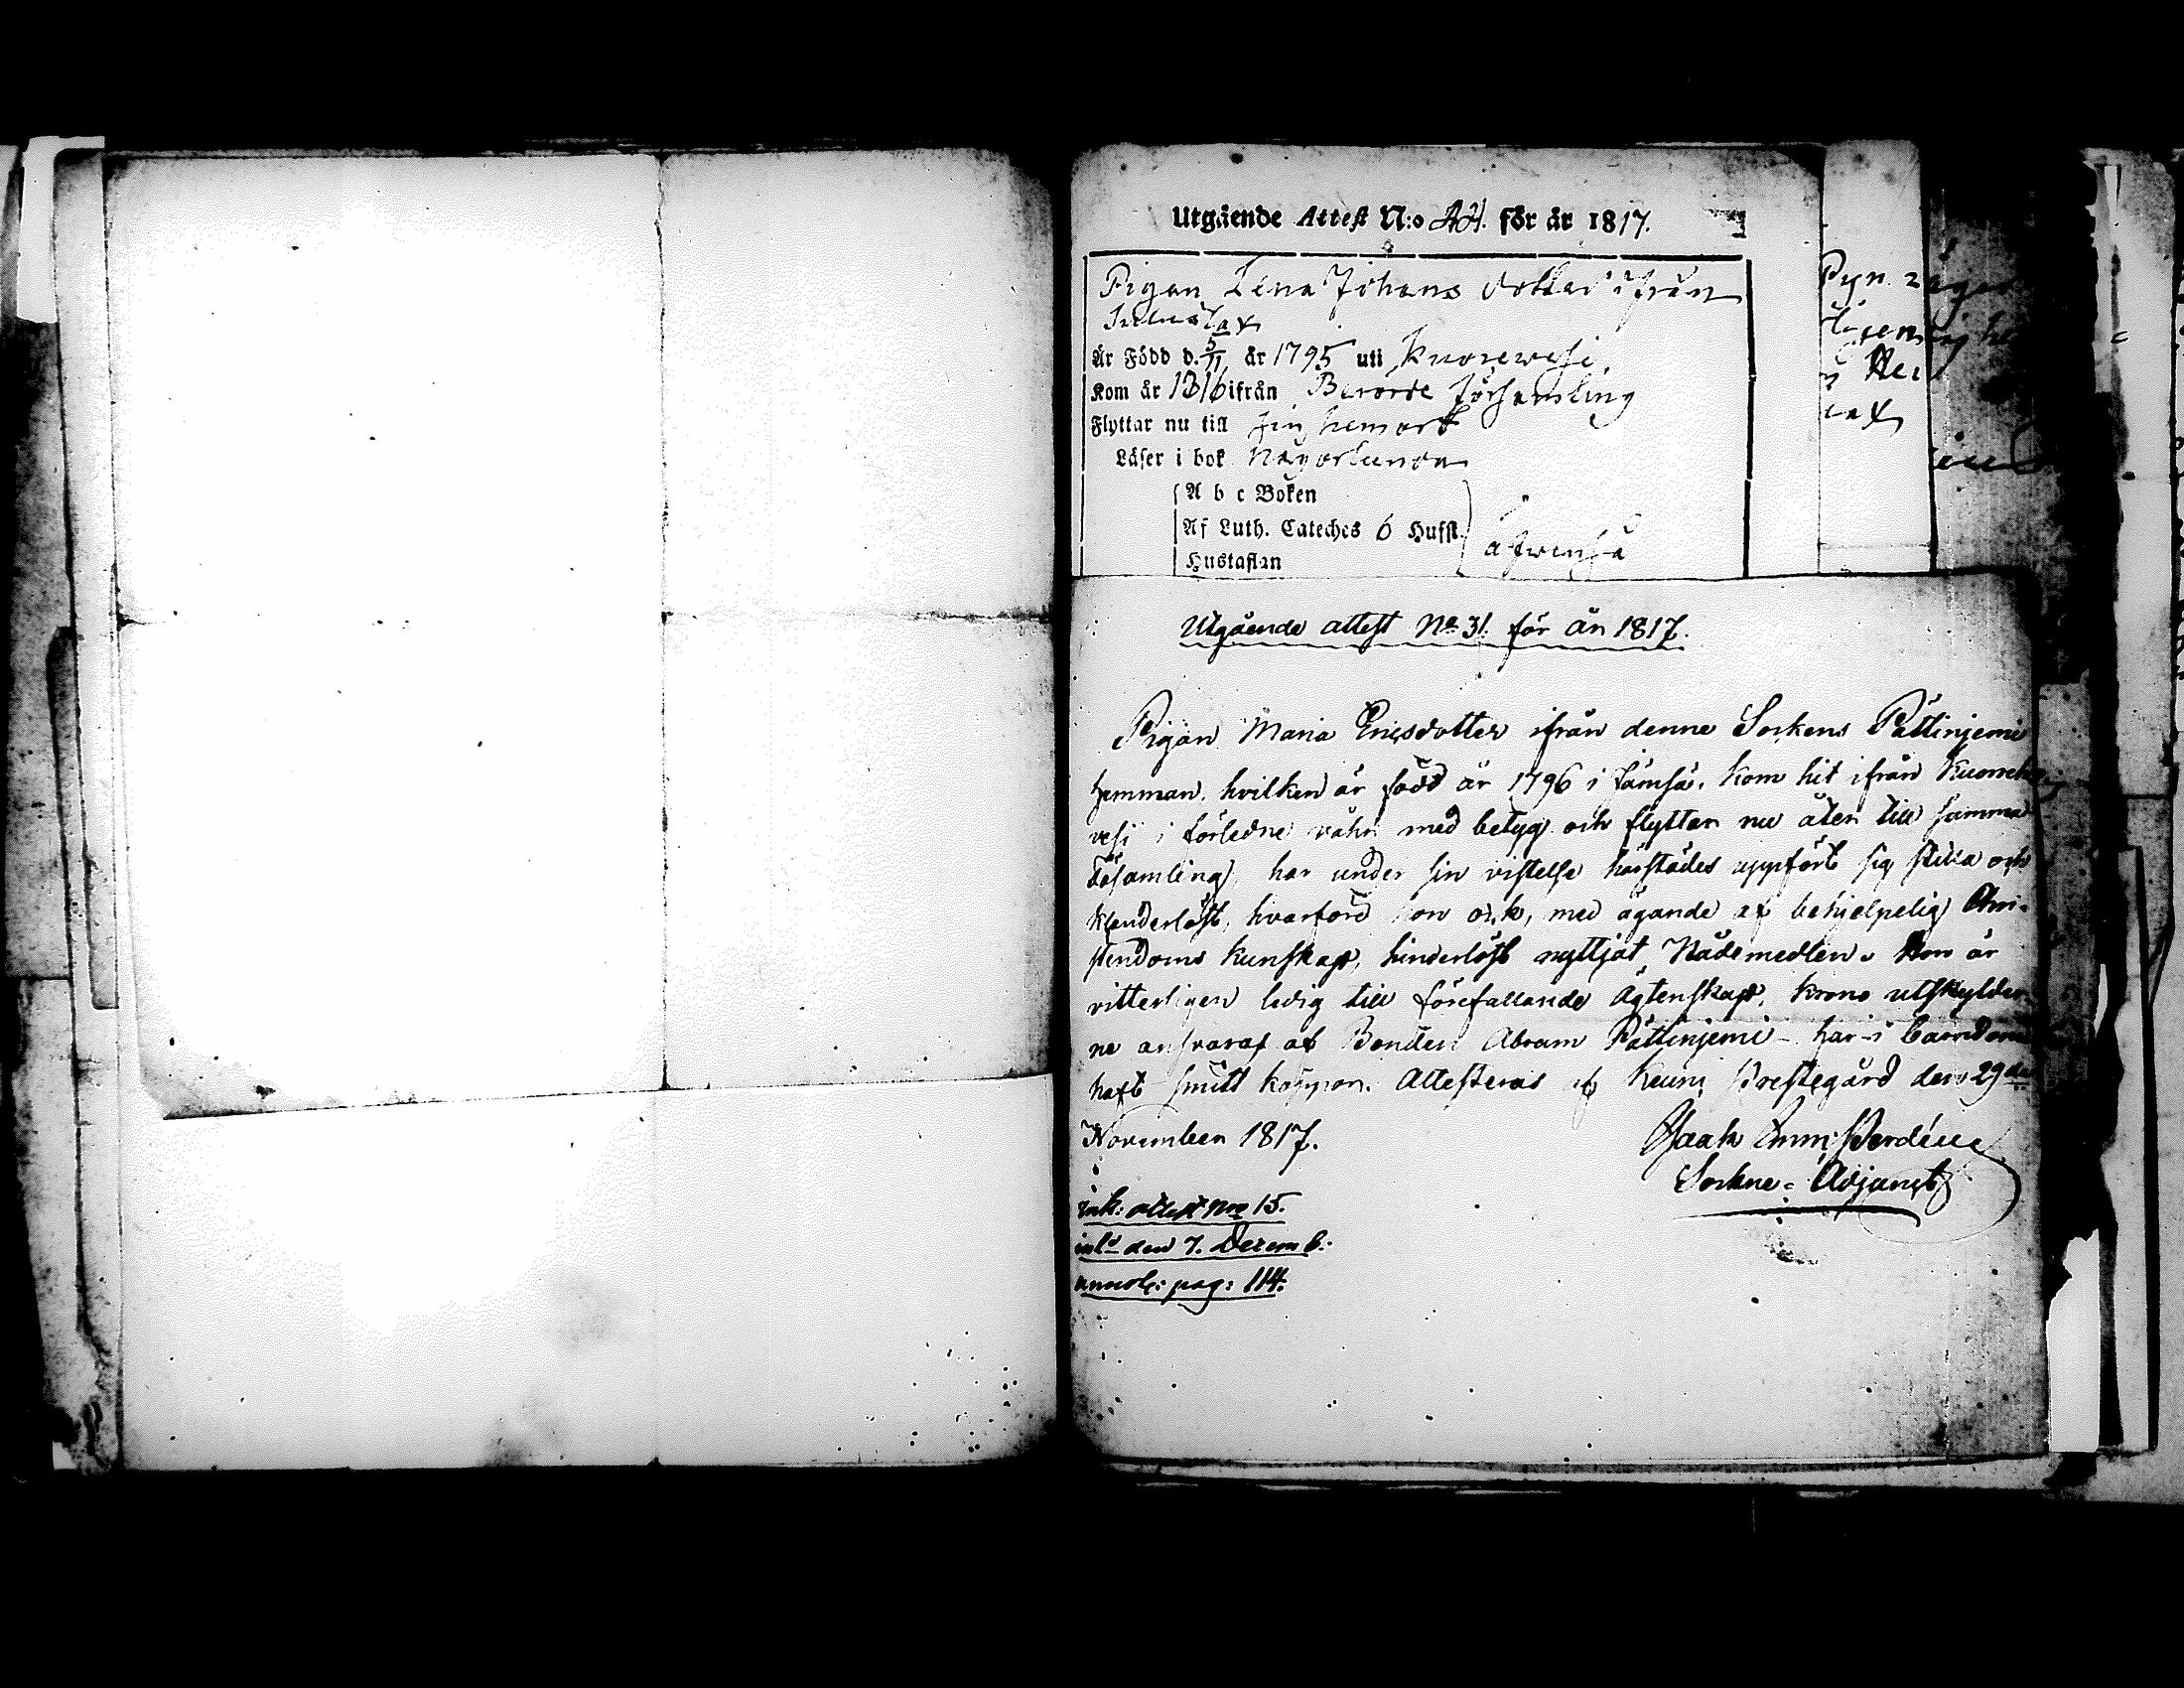 Utgående Attest N:o för år 1817.
Pigan Lena Johans dotter ifrån
Är Född d. 5/11 år 1795 uti Kuorewesi
Kom år 1816 ifrån Berörde Församling
Flyttar nu till
Läser i bok någorlunda
A b c Boken
Af Luth. Cateches 6 Hufst.
Hustaflan
äfwenså
Utgående attest No 31. för år 1817.
Pigan Maria Ericsdotter ifrån denne Sockens Pättinjemi
hemman, hvilken är född år 1796 i Jämsä, kom hit ifrån Kuorehe
vesi i förledne råhr med betyg och flyttar nu åter till samma
Församling, har under sin vistelse härstädes uppfört sig stilla och
klanderlöst, hvarföre hon ock, med ägande af behjelpelig Chri-
stendoms kunskap, hinderlöst nyttjat Nådemedlen. Hon är
vitterligen ledig till förefallande Ägtenskap. Krono utskylder
ne ansvaras af Bonden Abram Pättinjemi - har i barndom
haft smitt koppor. Attesteras af Keuru Prestegård den 29de
November 1817.
Isaak Perdén
Sockne-Adjunct
ink: attest No 15.
inl:d den 7. Decemb:
annot: pag: 114.